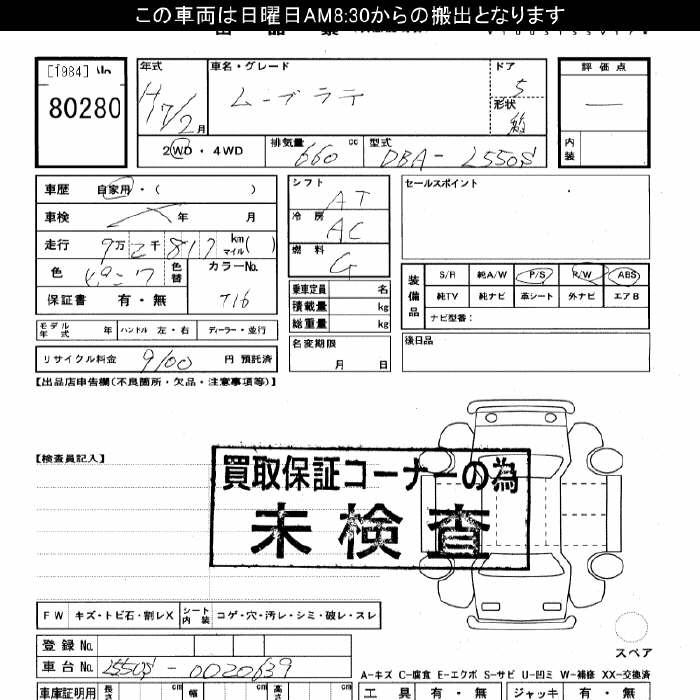 この車両は日曜日AM8:30からの搬出となります
[1984]
80280
年式
H17/2月
車名・グレード
ムーブラテ
ドア
5
形状
箱
評価点
—
内装
2WD・4WD
排気量
660 cc
型式
DBA-L550S
車歴 自家用・( )
車検 年 月
走行 9万2千817 km マイル( )
色 ピンク
色替
カラーNo.
T16
保証書 有・無
シフト
AT
冷房
AC
燃料
G
セールスポイント
乗車定員 名
積載量 kg
総重量 kg
装備品
S/R 純A/W P/S P/W ABS
純TV 純ナビ 革シート 外ナビ エアB
ナビ型番:
モデル年式 年 ハンドル 左・右 ディーラー・並行
名変期限
月 日
後日品
リサイクル料金 9100 円 預託済
【出品店申告欄(不良箇所・欠品・注意事項等)】
【検査員記入】
買取保証コーナーの為
未検査
FW キズ・トビ石・割レX シート内装 コゲ・穴・汚レ・シミ・破レ・スレ
スペア
登録No.
車台No. L550S-0020639
A-キズ C-腐食 E-エクボ S-サビ U-凹ミ W-補修 XX-交換済
車庫証明用 長さ cm 幅 cm 高さ cm
工具 有・無 ジャッキ 有・無